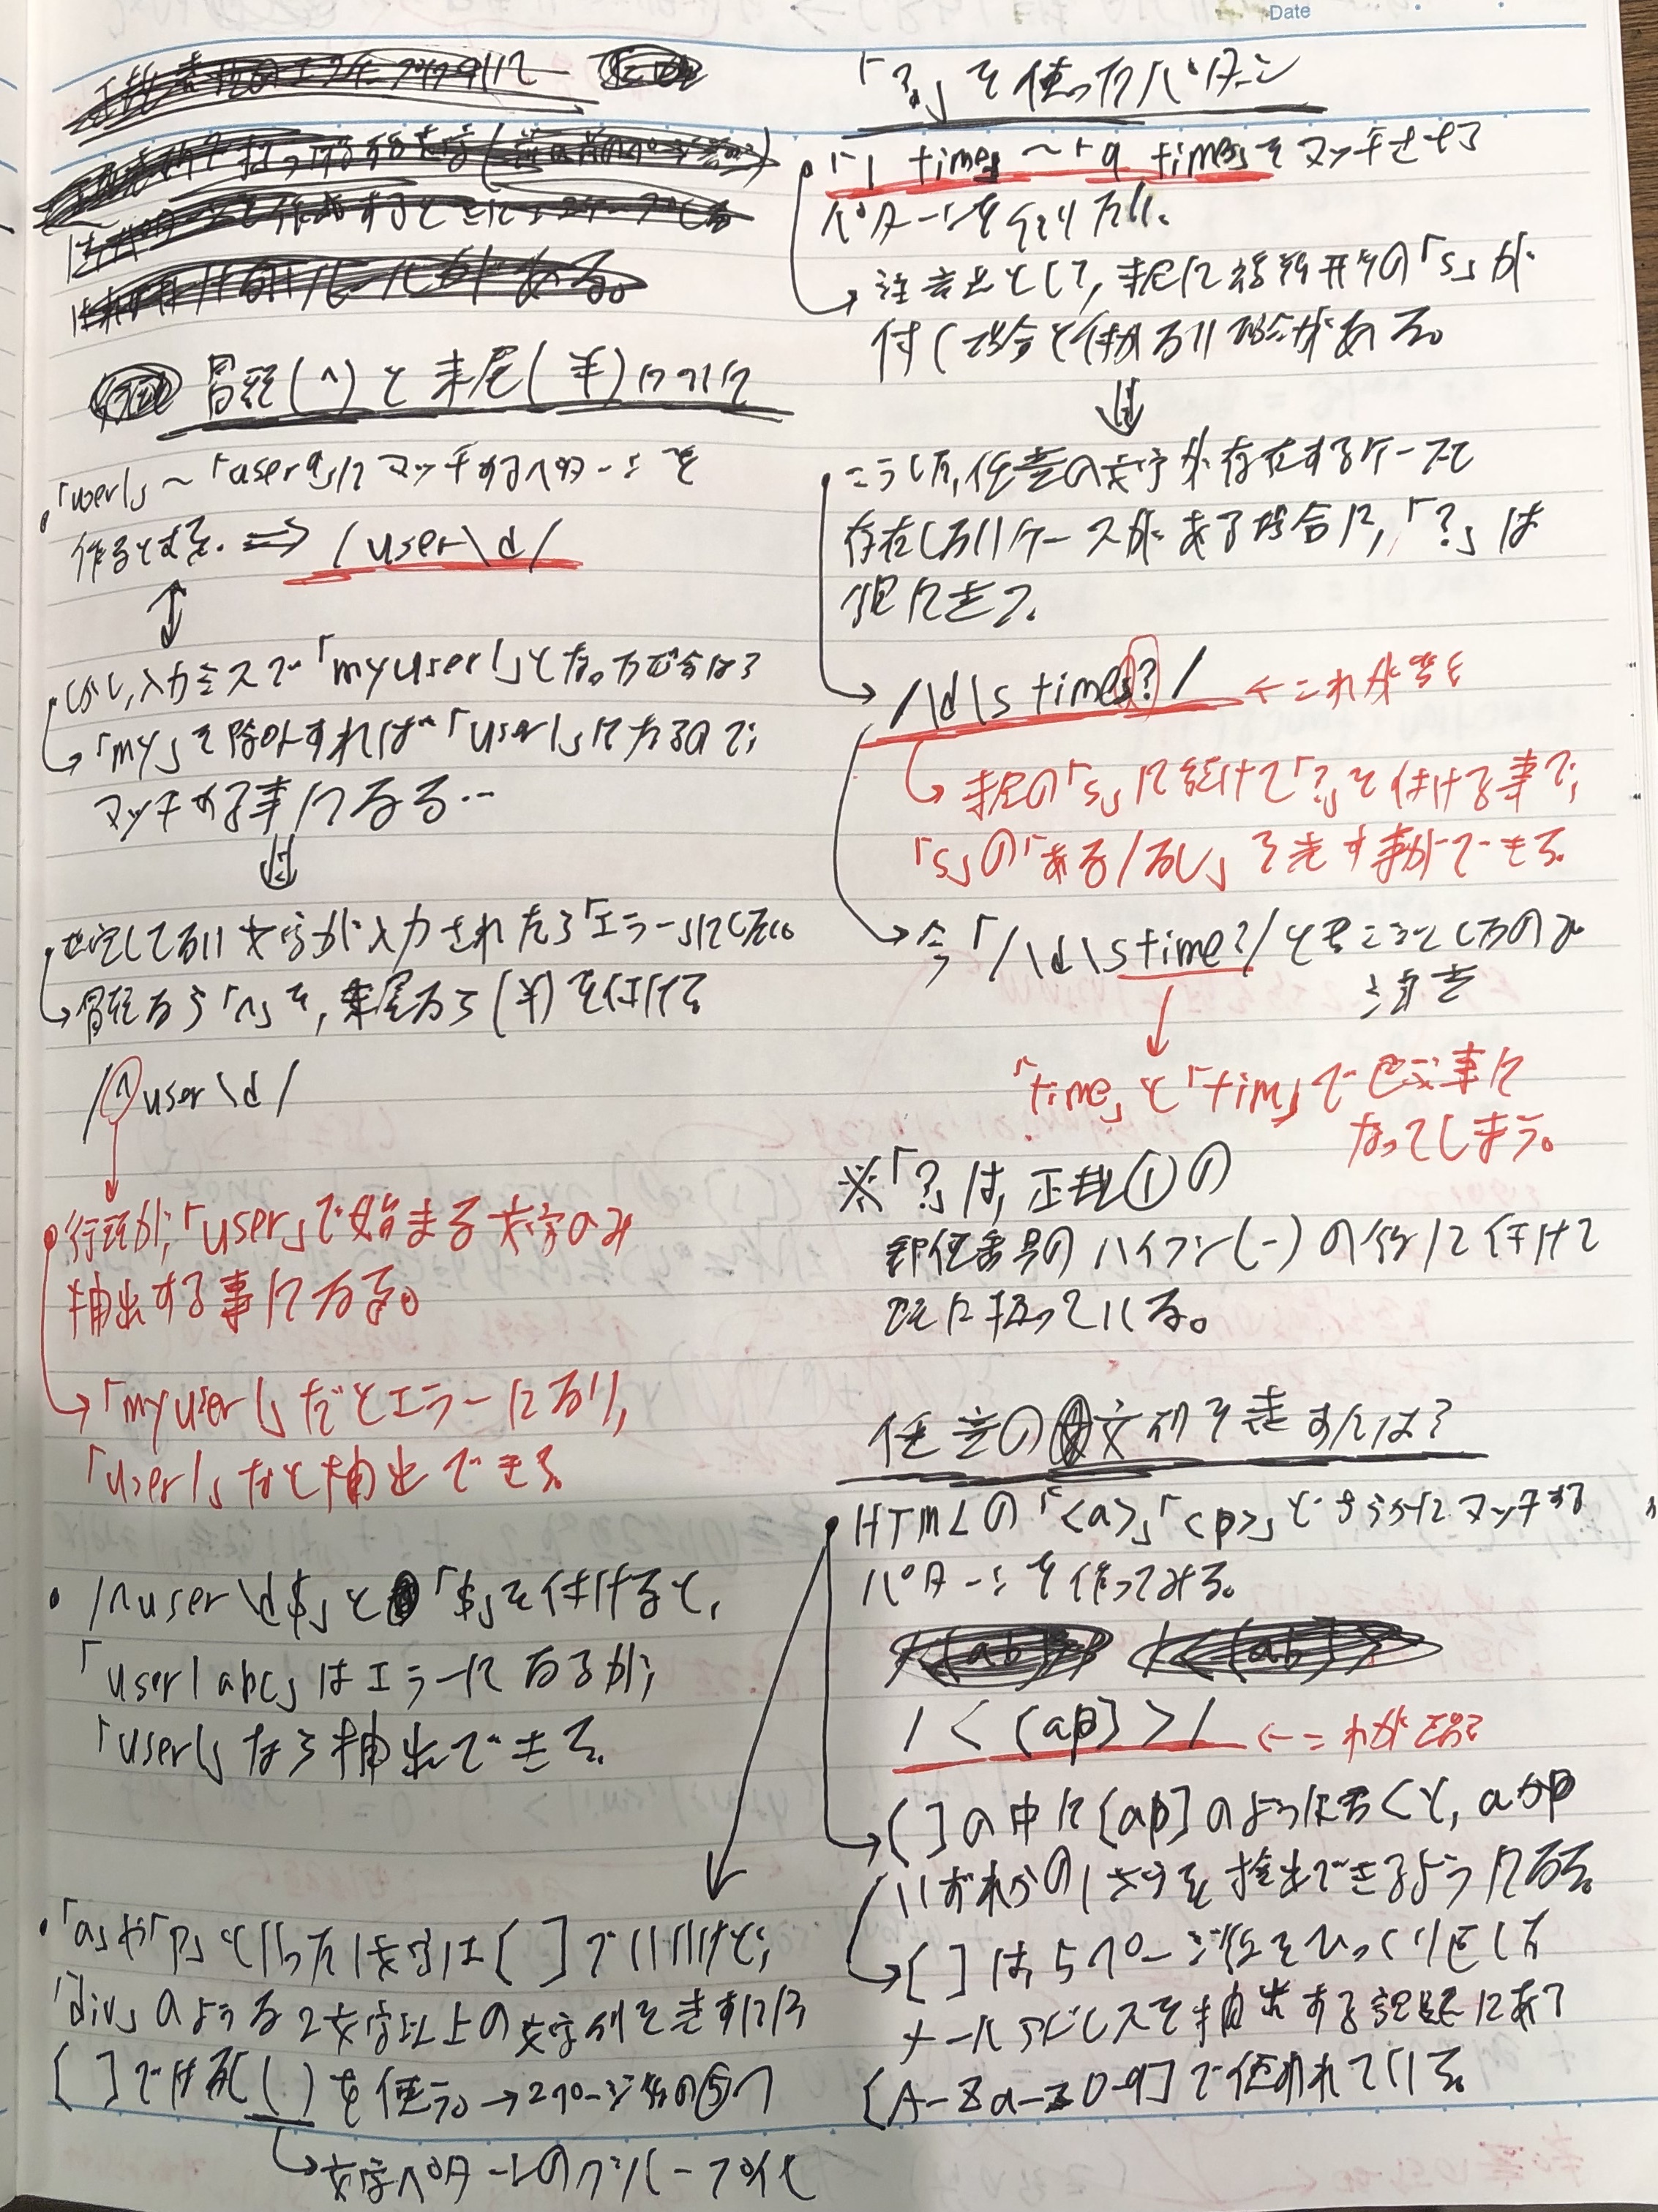 Date
冒頭(^)と末尾(¥)について
「user1」~「user9」にマッチするパターンを
作るとする. ⇒ /user\d/
しかし,入力ミスで「myuser1」となった場合は?
「my」を除外すれば「user1」になるので,
マッチする事になる…
想定してない文字が入力されたら「エラー」にしたい。
冒頭なら「^」を, 末尾なら(¥)を付ける
/^user\d/
行頭が,「user」で始まる文字のみ
抽出する事になる。
「myuser1」だとエラーになり,
「user1」なら抽出できる
/^user\d$」と「$」を付けると,
「user1abc」はエラーになるが,
「user1」なら抽出できる.
「a」や「p」といった1文字は[ ]でいいけど,
「div」のような2文字以上の文字列を表すには
[ ]ではなく( )を使う。→2ページ後の⑤へ
文字パターンのグループ化
「?」を使ったパターン
「1 time」~「9 times」をマッチさせる
パターンを作りたい。
注意点として, 末尾に複数形の「s」が
付く場合と付かない場合がある。
こうした,任意の文字が存在するケースと
存在しないケースがある場合に,「?」は
役に立つ.
/\d\s times?/ ←これが答え
末尾の「s」に続けて「?」を付ける事で,
「s」の「ある/なし」を表す事ができる.
今「/\d\stime?/と
注意
「time」と「tim」で
なってしまう。
※「?」は, 正規①の
郵便番号のハイフン(-)の後に付けて
既に扱っている。
任意の文字列を表すには?
HTMLの「<a>」「<p>」どちらかにマッチする
パターンを作ってみる。
/<[ap]>/ ←これが正解
[ ]の中に[ap]のように書くと, aかp
いずれかの1文字を抽出できるようになる。
[ ]は, 5ページ位をひっくり返した
メールアドレスを抽出する課題にあって
[A-Za-z0-9]で使われている。